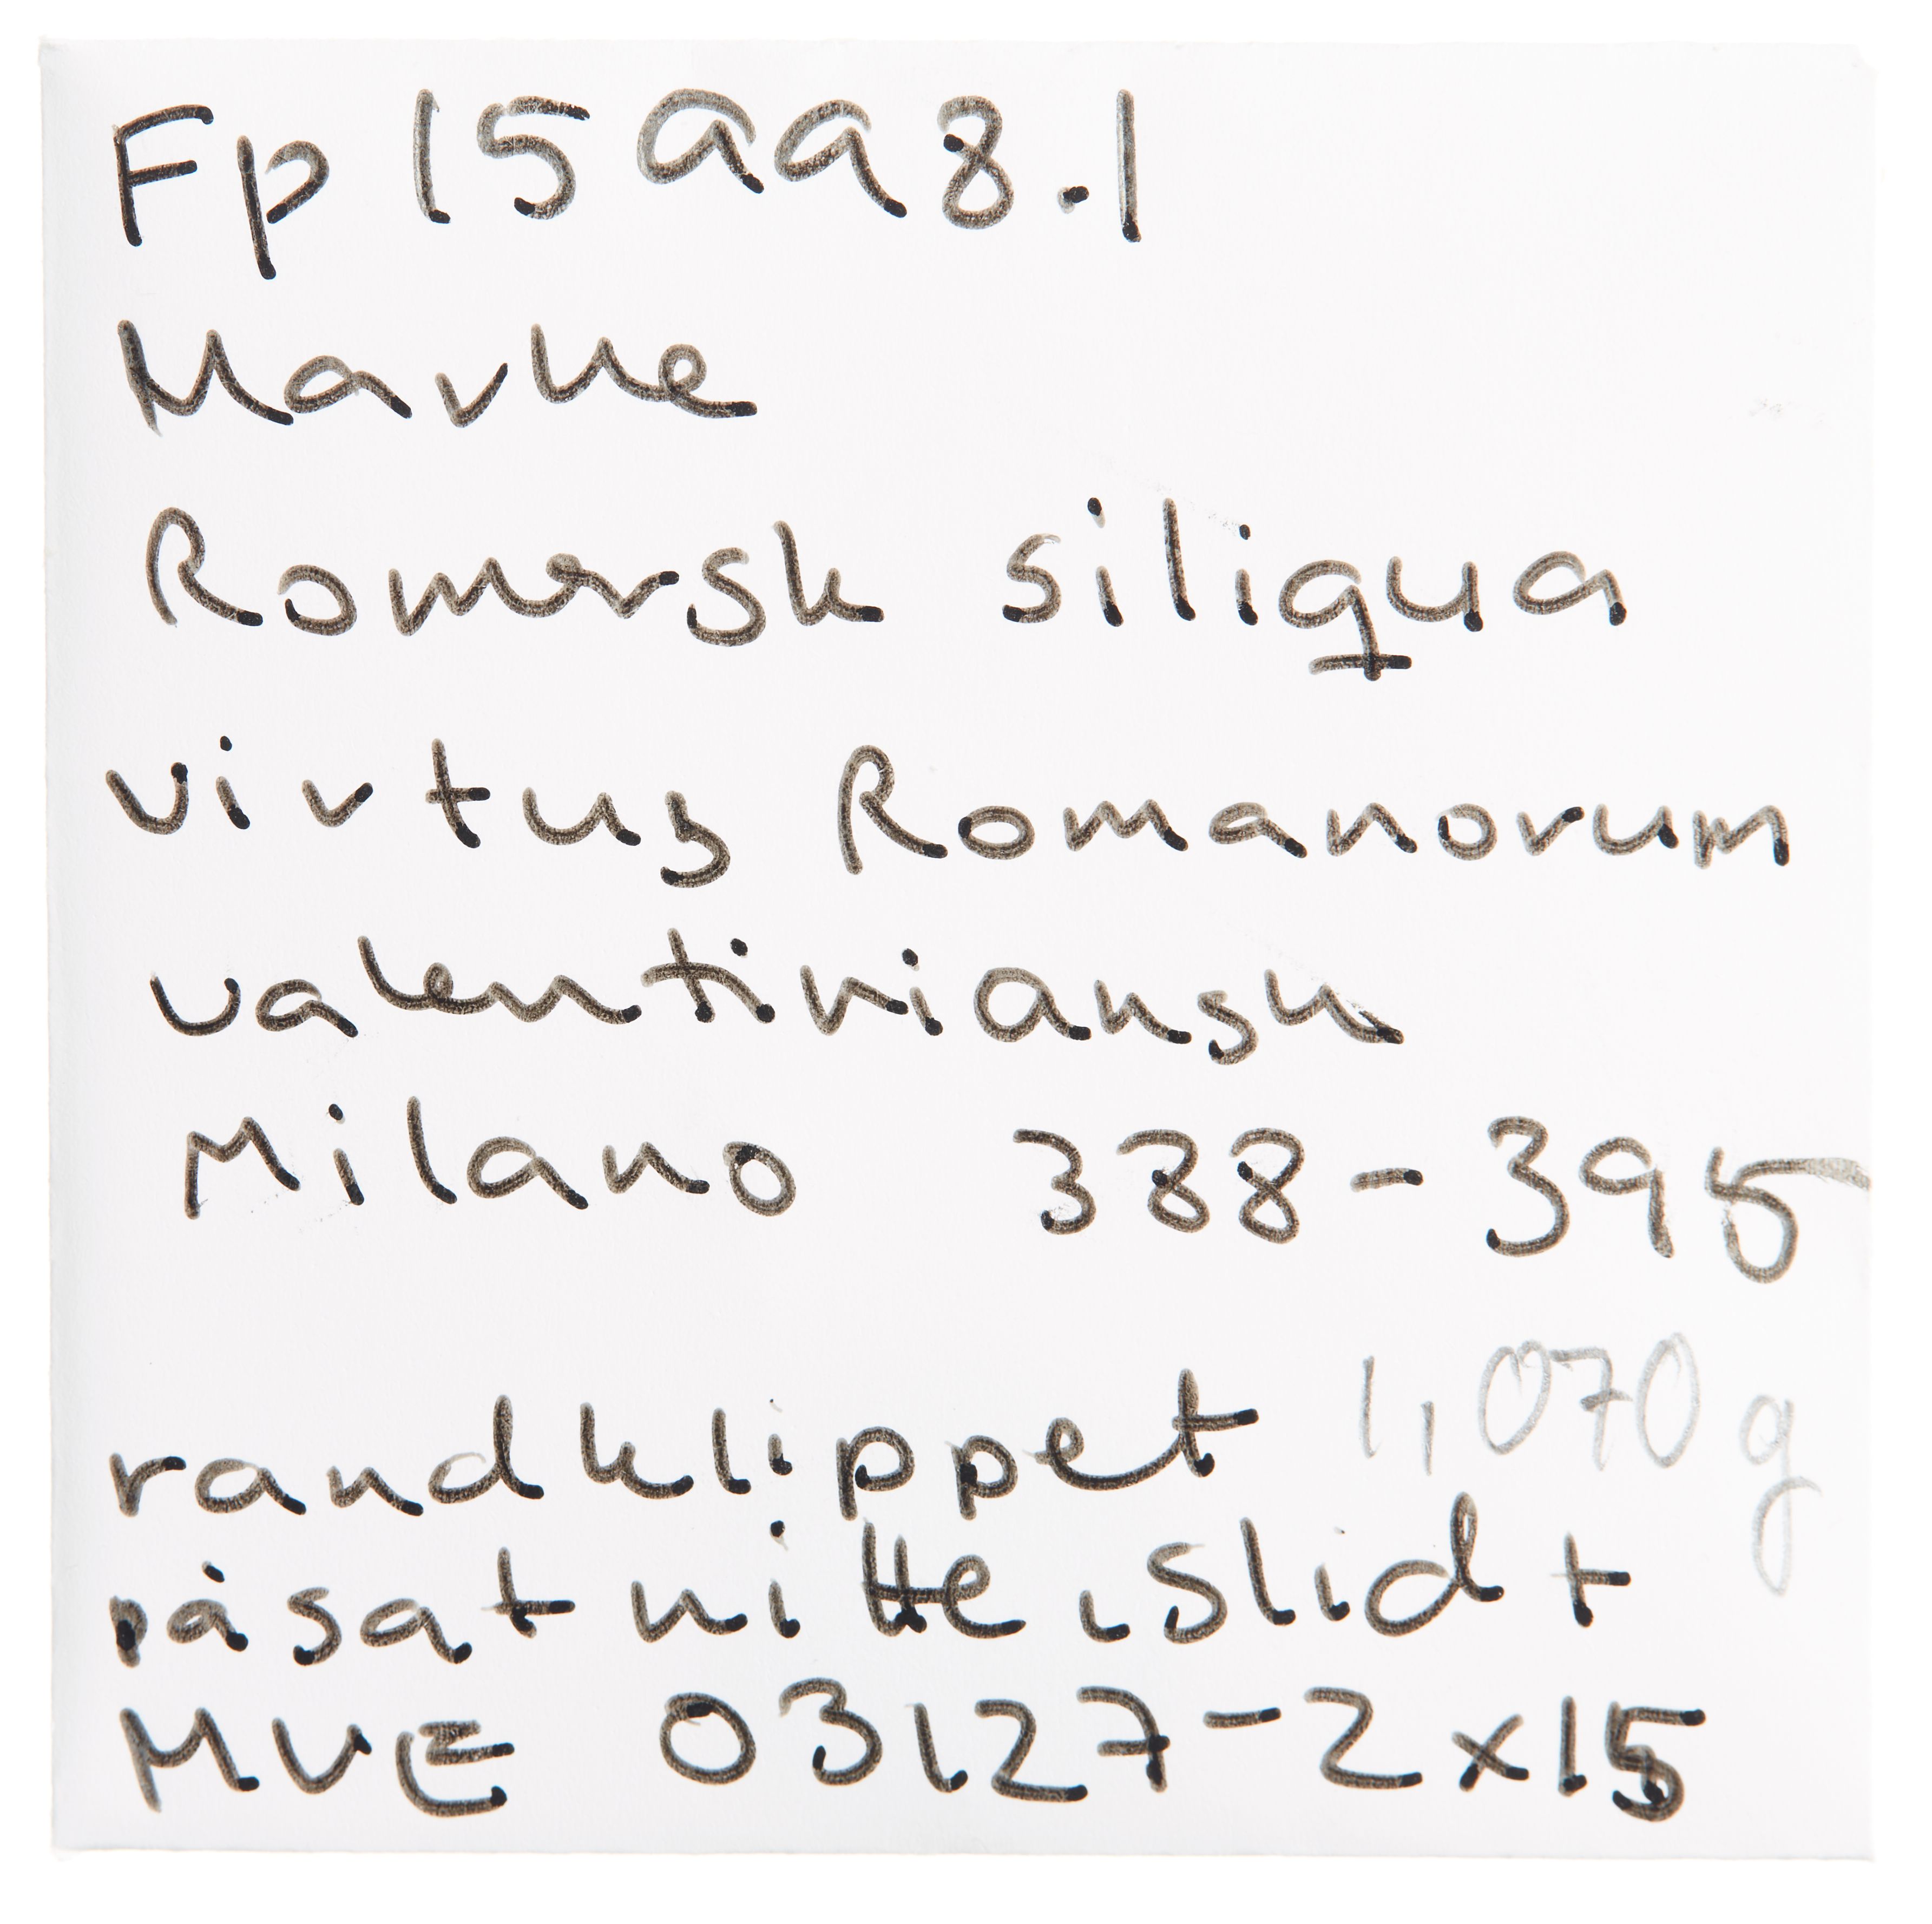 Fp 15998.1
Marke
Romersk siliqua
virtus Romanorum
valentiniansk
Milano 388-395
randklippet 1,070 g
påsat nitte, slidt
MVE 03127-2x15